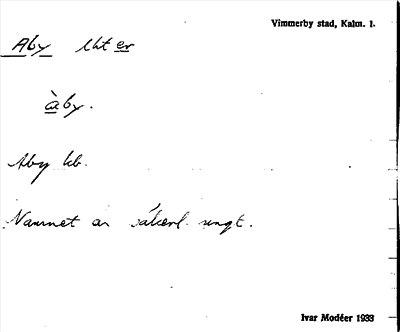 Vimmerby stad, Kalm. l.
Aby lht er
àby.
Aby kb.
Namnet är säkerl. ungt.
Ivar Modéer 1933